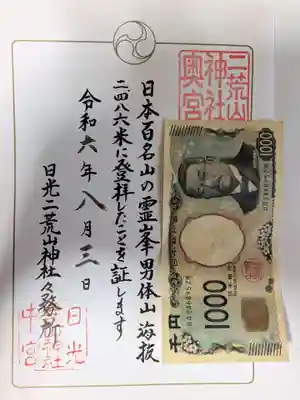 二荒山
神社
奥宮
日本百名山の霊峯男体山海抜
二四八六米に登拝したことを証します
令和六年八月三日
日光二荒山神社々務所
日光
中宮
1000
千円
1000